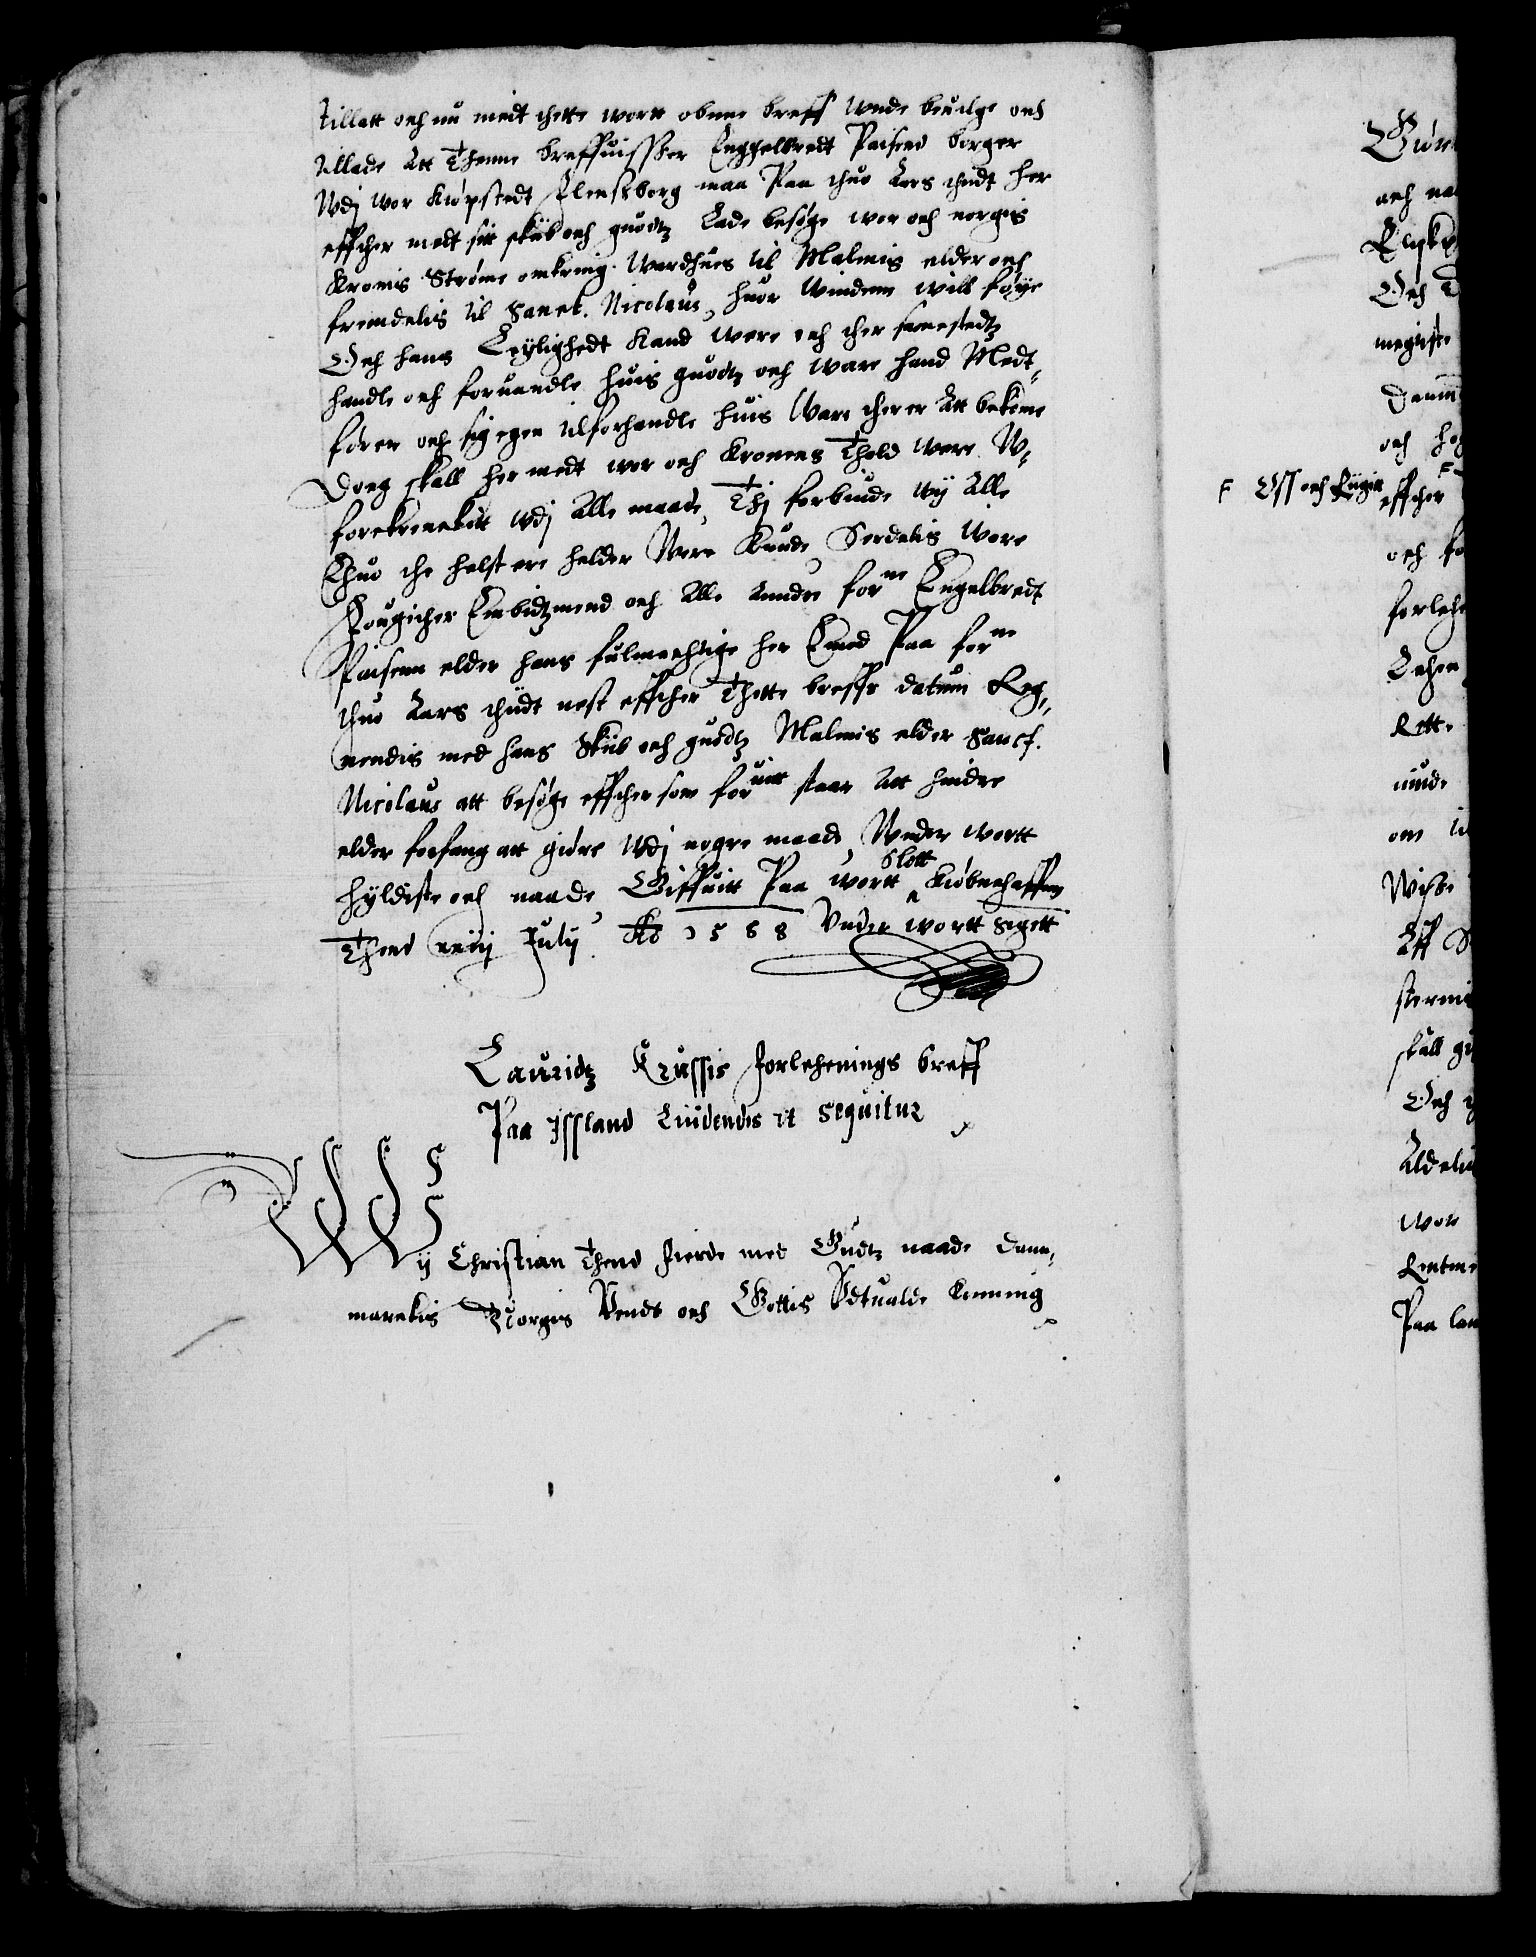 tillatt och nu medt thette wortt obnne breff wnde beuilge och
tillade att Thenne breffuissker Enggelbredt Paisend borger
Wdj wor Kiøpstedt Flensborg maa Paa thuo Aars thidt her
effther medt sit skib och guodtz lade besøge wor och norgis
Kronis Strøme omkring Wardhues til Malmis elder och
fremdelis til Sanct. Nicolaus, huor Windenn will føye
Och hans Leylighedt Kand were och ther samestedtz
handle och foruandle huis guodtz och ware hand Medt-
fører och sig egen tilforhandle huis Ware therer att bekome
Dog skall her medt wor och Kronens Thold were W-
forekrenckitt wdj alle maade, Thj forbiude wij alle
Ehuo the helst ere helder Were Kunde Serdelis wore
Fougither Embidtzmend och alle andre for.ne Engelbredt
Paisenn elder hans fulmechtige her Emod Paa for.ne
thuo Aars thidt nest effther Thette breffs datum Reg-
nendis med hans Skib och guodtz Malmis elder Sanct.
Nicolaus att besøge effther som foruitt staar att hindre
elder forfang att giøre wdj nogre maade, Wnder wortt
hyldiste och naade Giffuitt Paa wortt Slott Kiøbnehaffnn
Thend xxiij July Ao 1588 Vnder wortt Segett
Lauridtz Krussis forlehenings breff
Paa Issland Liudendis vt Sequitur
Wij Christian Thend fierde med Gudtz naade Dann-
marckis Norgis Vendt och Gottis Vdtualde Konning
F Oss och Rigitt
effther
Och
och
Lehen
Rett
om
Wisse
Aff
skall
Och
wor
Paa